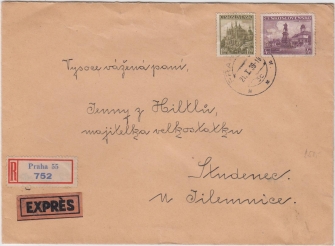 ČESKO-SLOVENSKO
ČESKO-SLOVENSKO
Vysoce vážená paní,
Jenny z Hiltlů,
majitelka velkostatku
Studenec
u Jilemnice.
R
Praha 55
752
EXPRÈS